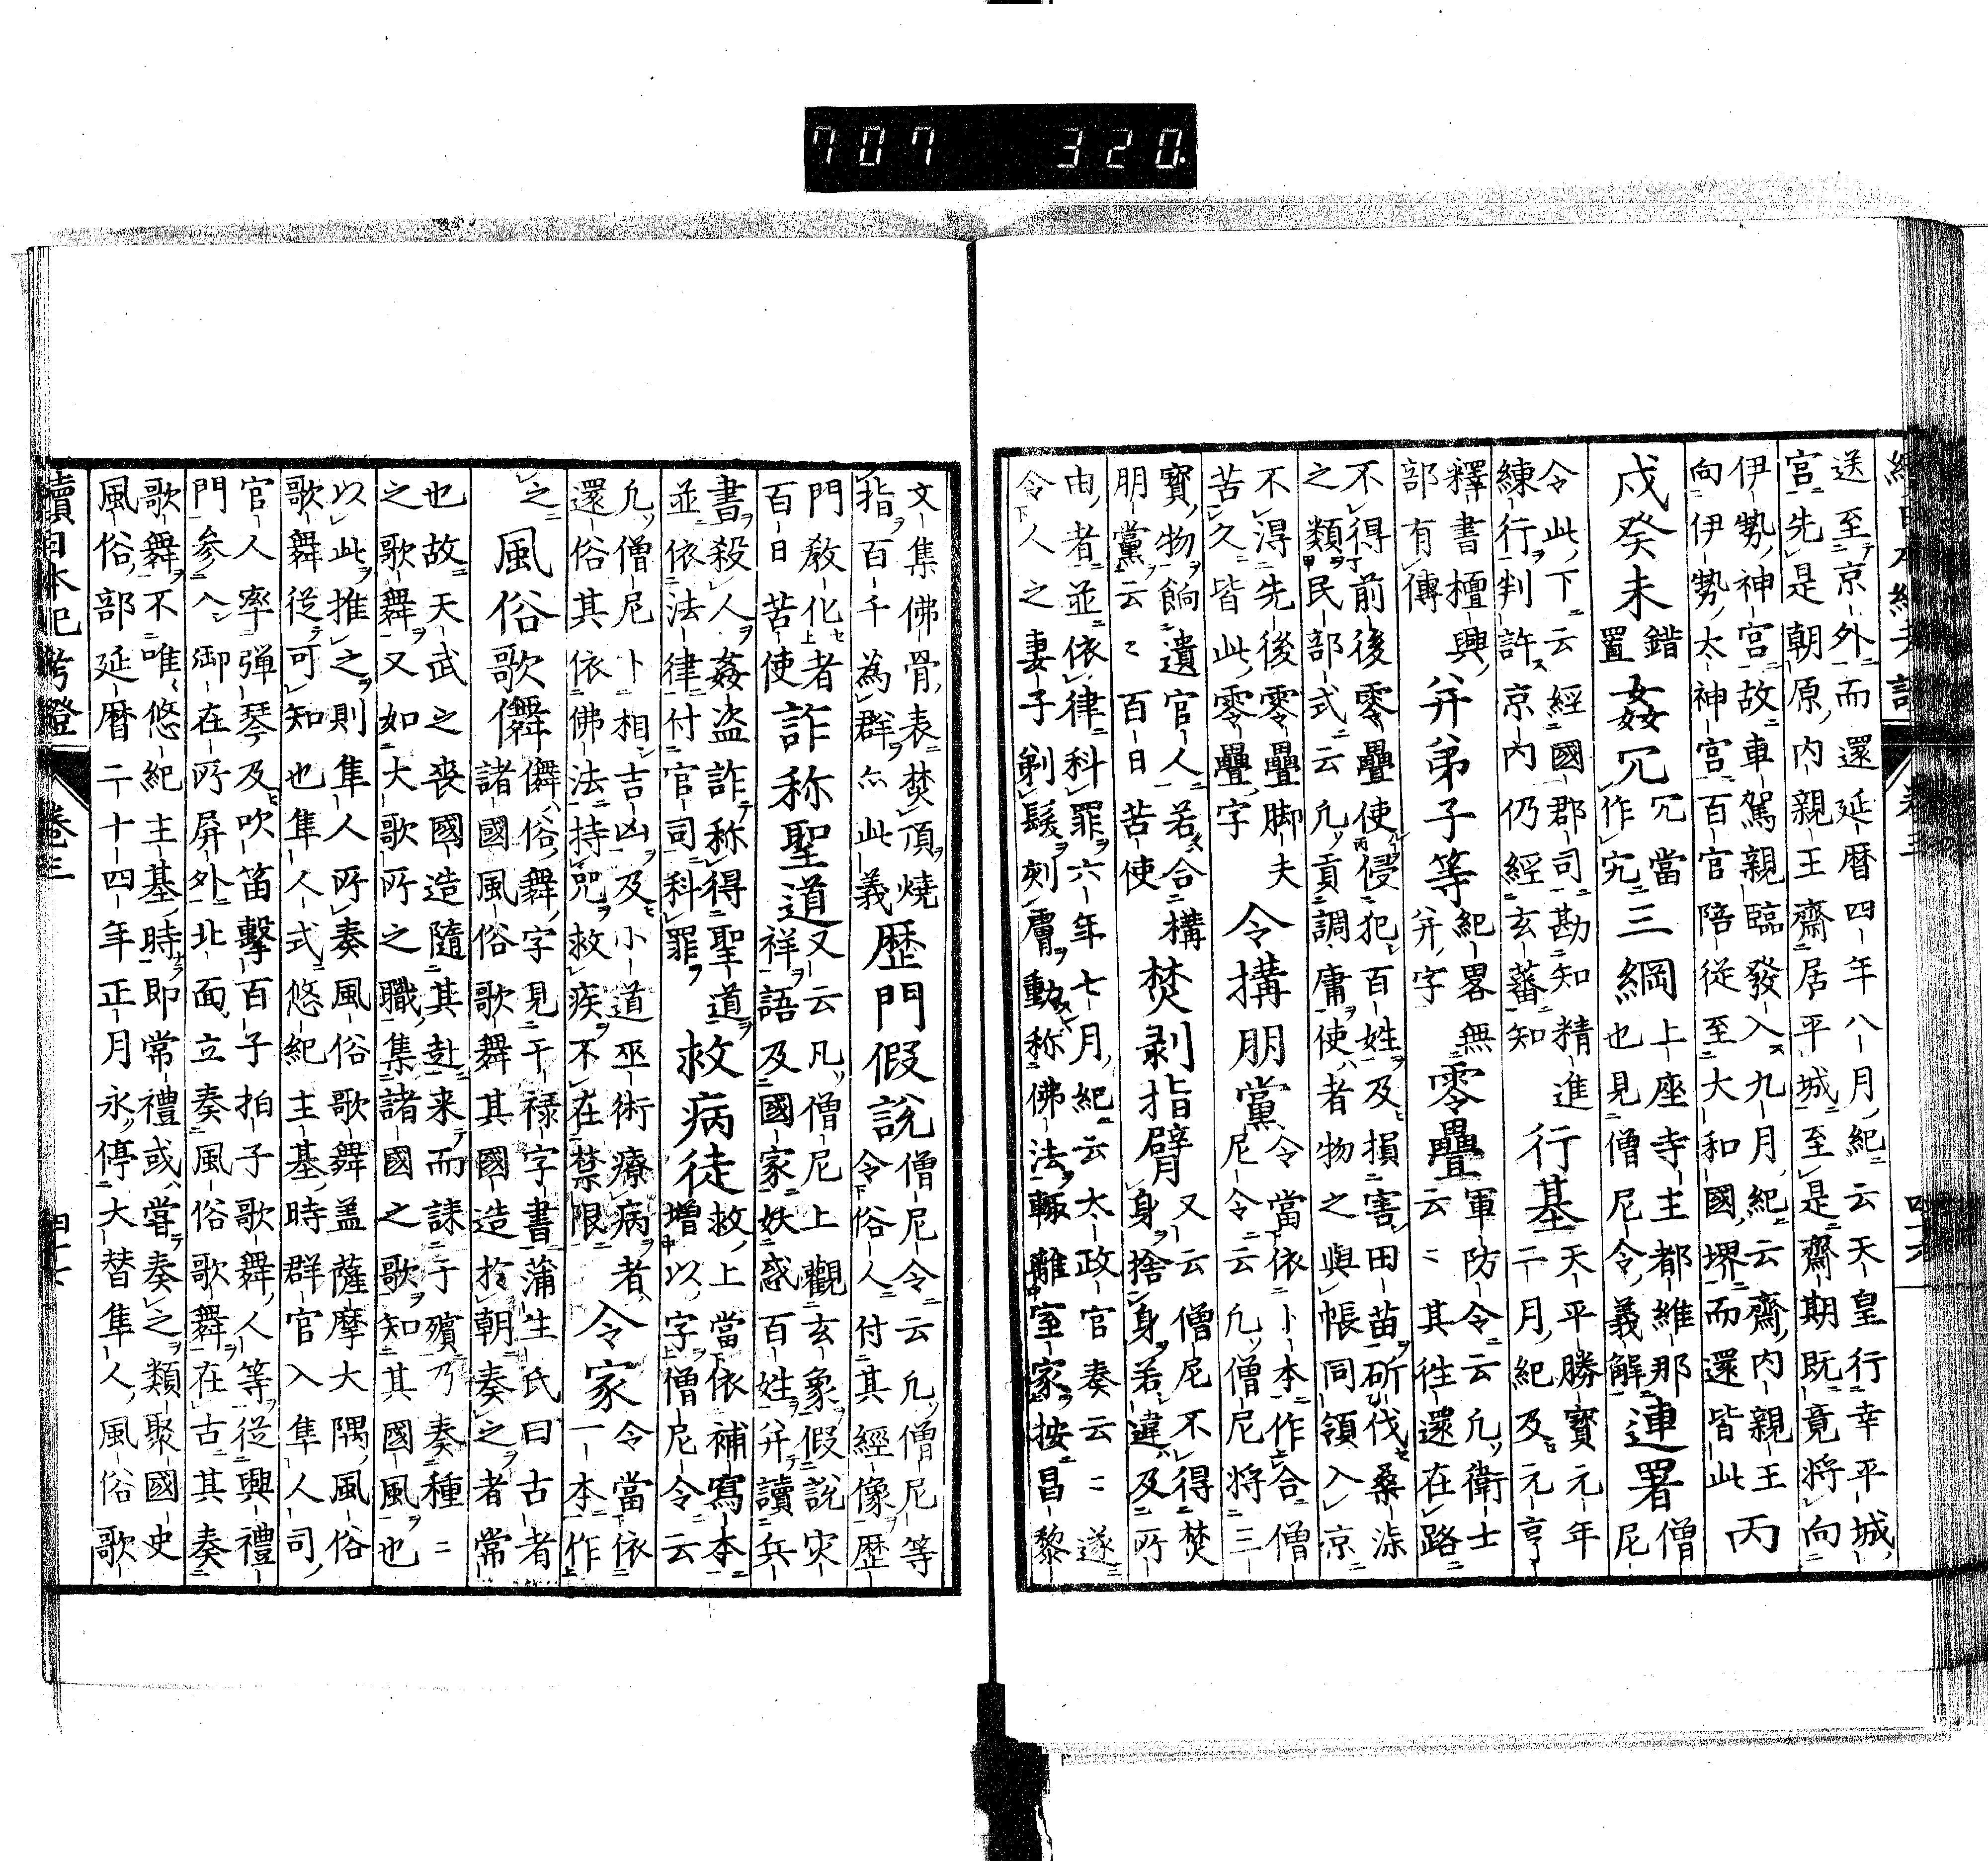 707 320
送至京外而還延暦四年八月紀云天皇行幸平城
宮先是朝原内親王齋居平城至是齋期既竟將向
伊勢神宮故車駕親臨發入九月紀云齋内親王
向伊勢太神宮百官陪從至大和國堺而還皆此 丙
戌癸未 錯置 姦宄 宄當作宄 三綱 上座寺主都維那也見僧尼令義解 連署 僧尼
令此下云經國郡司勘知精進
練行判許京内仍經玄蕃知 行基 天平勝寶元年二月紀及元亨
釋書檀興
部有傳 弁弟子等 紀畧無弁字 零疊 軍防令云凡衛士云〻其往還在路
不得前後零疊使侵犯百姓及損害田苗斫伐桑漆
之類民部式云凡貢調庸使者物之與帳同領入京
不得先後零疊脚夫
苦久皆此零疊字 令搆朋黨 令當依卜本作合僧尼令云凡僧尼將三
寶物餉遺官人若合構
朋黨云〻百日苦使 焚剥指臂 又云僧尼不得焚身捨身若違及所
由者並依律科罪六年七月紀云太政官奏云〻遂
令人之妻子剃髮刻膚動称佛法輙離室家按昌黎
文集佛骨表焚頂燒
指百千為群亦此義 歴門假說 僧尼令云凡僧尼等令俗人付其經像歴
門教化者
百日苦使 詐称聖道 又云凡僧尼上觀玄象假說灾祥語及國家妖惑百姓并讀兵
書殺人姦盗詐称得聖道
並依法律付官司科罪 救病徒 救上當依補寫本増以字僧尼令云
凡僧尼卜相吉凶及小道巫術療病者
還俗其依佛法持咒救疾不在禁限 令家 令當依一本作
之 風俗歌儛 儛俗舞字見干禄字書蒲生氏曰古者諸國風俗歌舞其國造於朝奏之者常
也故天武之喪國造隨其赴来而誄于殯乃奏種〻
之歌舞又如大歌所之職集諸國之歌知其國風也
以此推之則隼人所奏風俗歌舞盖薩摩大隅風俗
歌舞從可知也隼人式悠紀主基時群官入隼人司
官人率彈琴及吹笛擊百子拍子歌舞人等從興禮
門參入御在所屏外北面立奏風俗歌舞在古其奏
歌舞不唯悠紀主基時即常禮或嘗奏之類聚國史
風俗部延暦二十四年正月永停大替隼人風俗歌
續日本紀考證 卷三